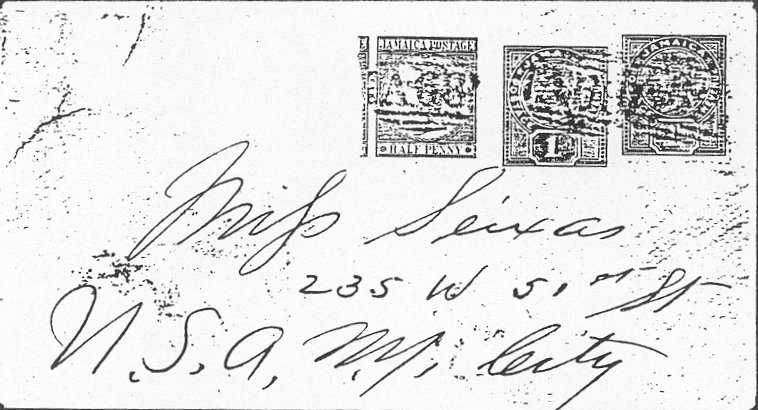 JAMAICA POSTAGE
HALF PENNY
JAMAICA
1
Miss Seixas
235 W 51st St
U.S.A. N.Y. City